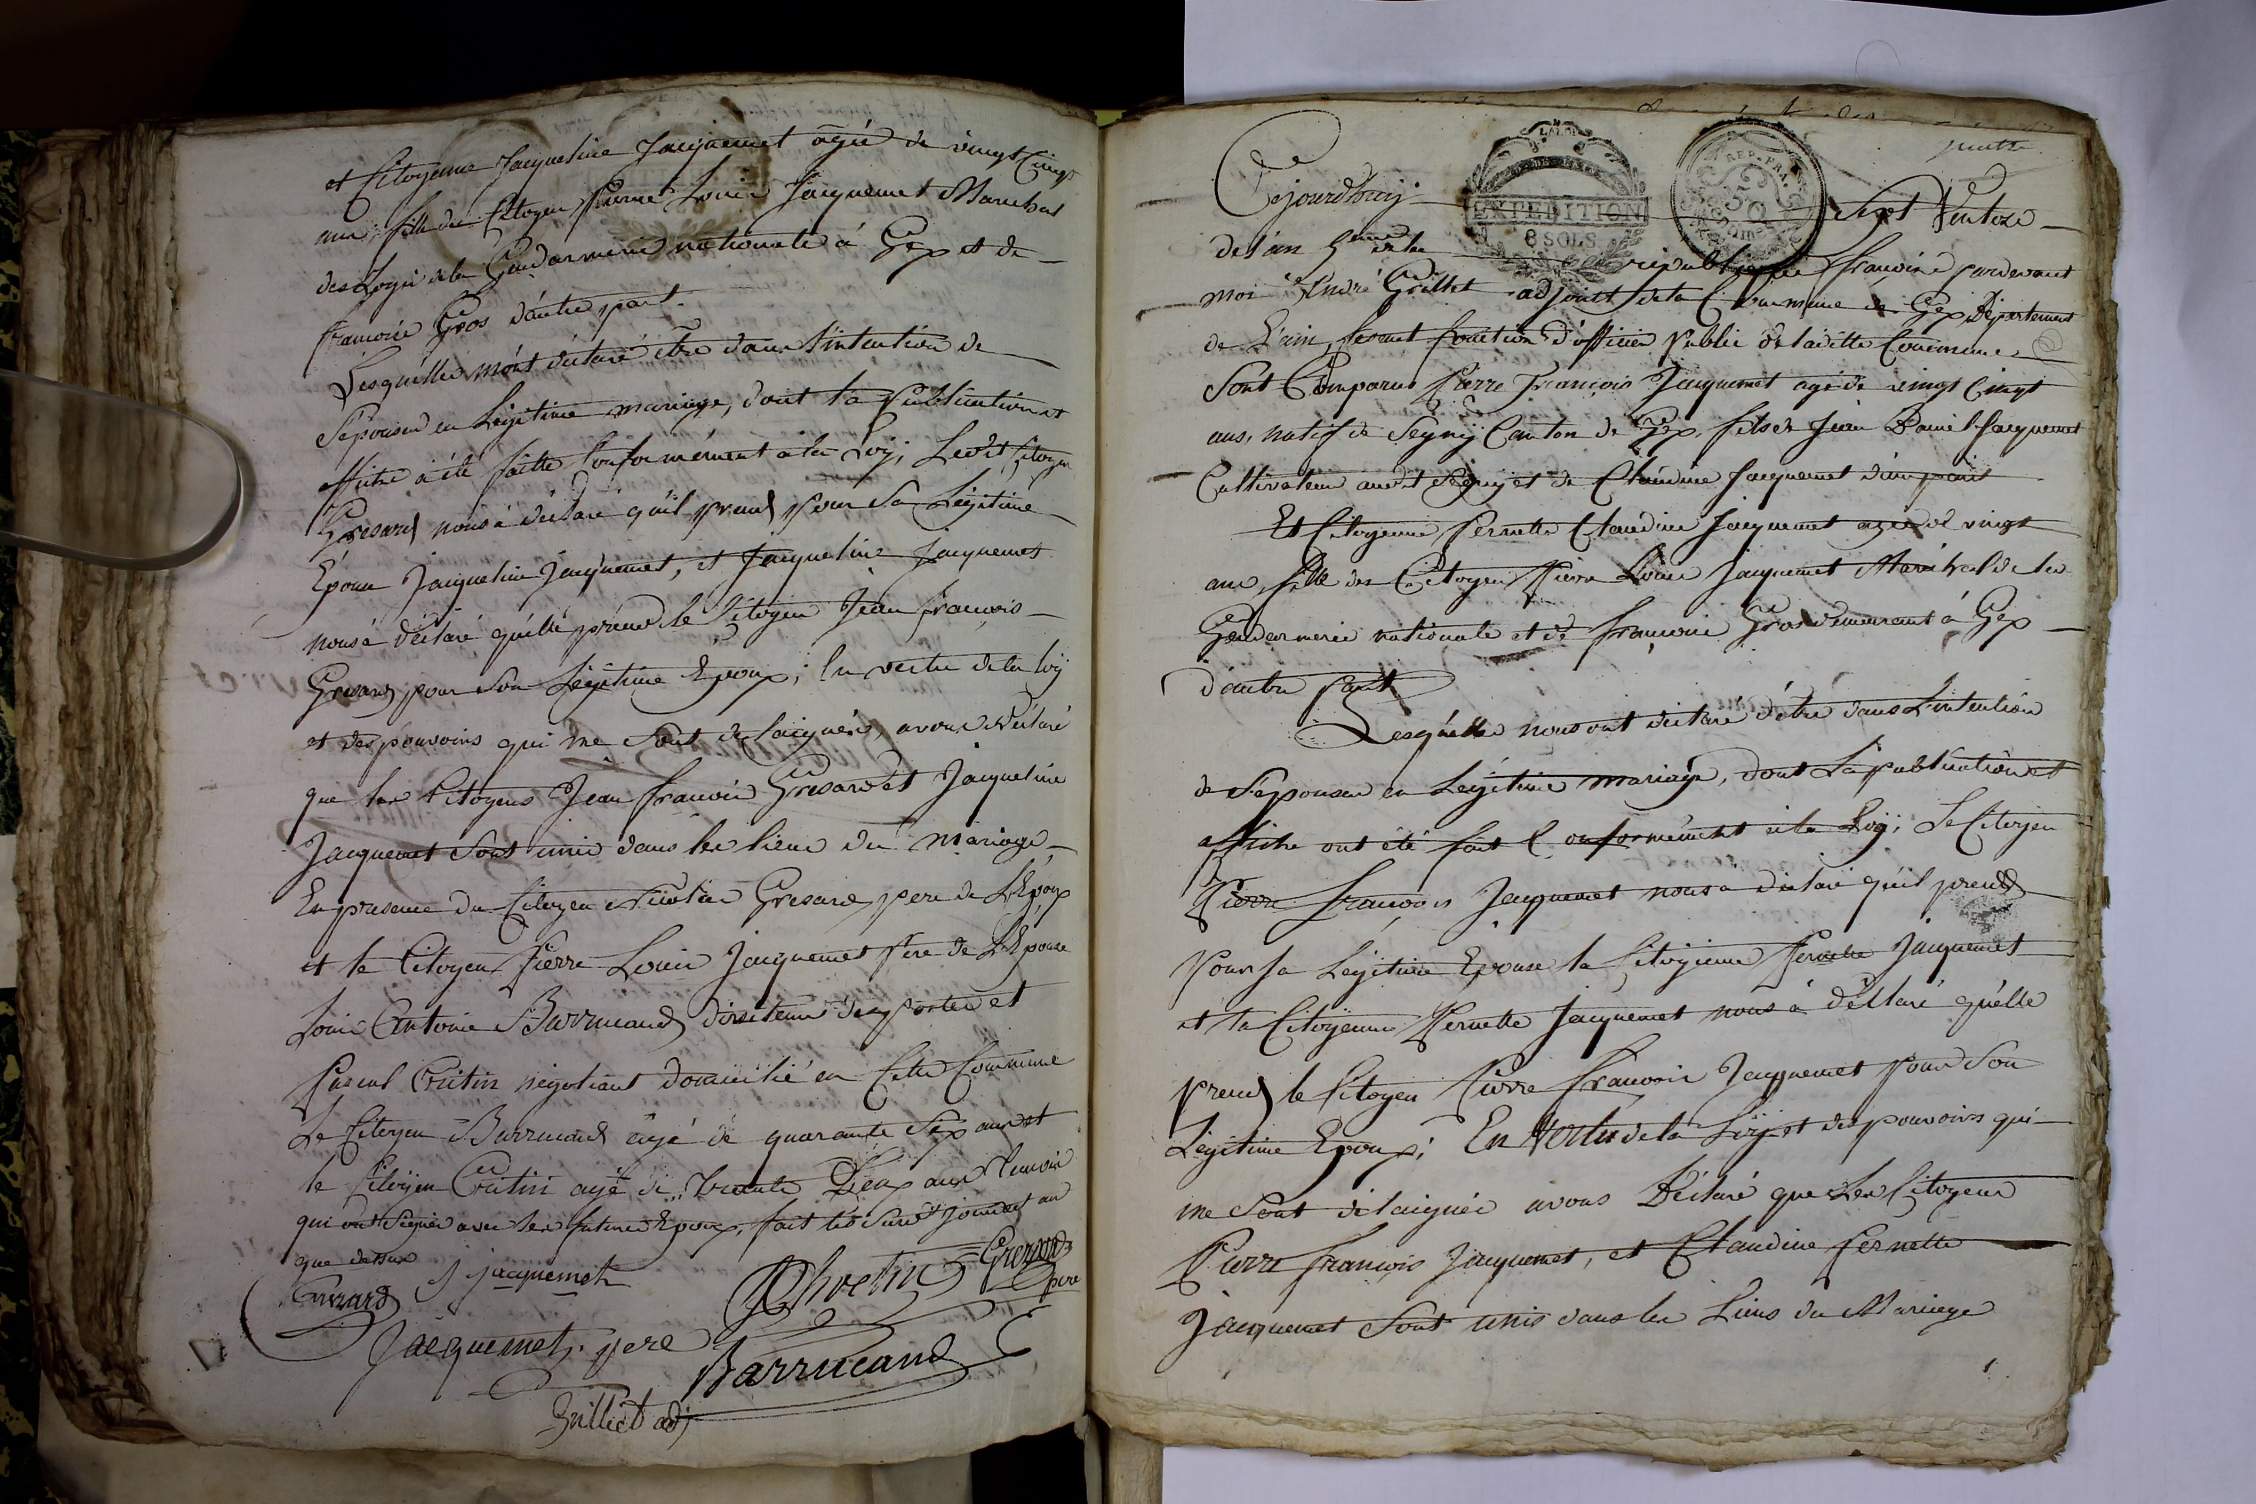 et Citoyenne Jacqueline Jacquemet agée de vingt Cinq
ans, fille du Citoyen Pierre Louis Jacquemet Marechal
des Logis de la Gendarmerie nationale à Gex et de
francoise Gros d'autre part.
Lesquelles m'ont déclaré être dans l'intention de
S'epouser en Légitime mariage, dont la Publication et
affiche à été faitte Conformément à la Loy; Ledit Citoyen
Gresard nous à déclaré qu'il prend pour Sa Légitime
Epouse Jacqueline Jacquemet, et Jacqueline Jacquemet
nous à déclaré qu'elle prend le Citoyen Jean françois
Gresard pour Son Légitime Epoux; En vertu de la loy
et des pouvoirs qui me Sont delaigués, avons déclaré
que les Citoyens Jean francois Gresard et Jacqueline
Jacquemet Sont unis dans les liens du mariage,
En presence du Citoyen Nicolas Gresard pere de L'Epoux
et le Citoyen Pierre Louis Jacquemet Pere de L'Epouse
Louis Antoine Barrucand directeur des postes et
Pascal Cretin négotiant domicilié en Cette Commune
Le Citoyen Barrucand agé de quarante Six ans et
le Citoyen Cretin agé de trente Deux ans Temoins
qui ont Signés avec les futurs Epoux, fait les Susdt jour et an
que dessus
Grezard J jacquemet Chretin Grezard pere
Jacquemet pere Barrucand
Grilliet adj
Cejourd'huy Sept Ventose
EXPEDITION
8 SOLS
REP. FRA.
50
de l'an 5eme de la republique françoise pardevant
moi André Grillet adjoint de la Commune de Gex Département
de L'ain, fesant fonction d'officier Public de laditte Commune
Sont Comparus Pierre François Jacquemet agé de vingt Cinqt
ans, natif de Segny Canton de Gex, fils de Jean Daniel Jacquemet
Cultivateur audit Segny et de Claudine Jacquemet d'un part
Et Citoyenne Pernette Claudine Jacquemet agée de vingt
ans, fille des Citoyen Pierre Louis Jacquemet Maréchal de la
Gendarmerie nationale et de francoise Gros demeurant à Gex
d'autre Part
Lesquelles nous ont déclaré d'être dans L'intention
de S'epouser en Légitime mariage, dont La publication et
affiche ont été fait Conformément à la Loy; Le Citoyen
Pierre françois Jacquemet nous a déclaré qu'il prend
Pour Sa Légitime Epouse la Citoyenne Pernette Jacquemet
et la Citoyenne Pernette Jacquemet nous à déclaré qu'elle
prend le Citoyen Pierre francois Jacquemet Pour Son
Légitime Epoux; En Vertu de la Loy et des pouvoirs qui
me Sont délaigués avons Déclaré que Les Citoyens
Pierre françois Jacquemet, et Claudine Pernette
Jacquemet Sont unis dans les Liens du Mariage